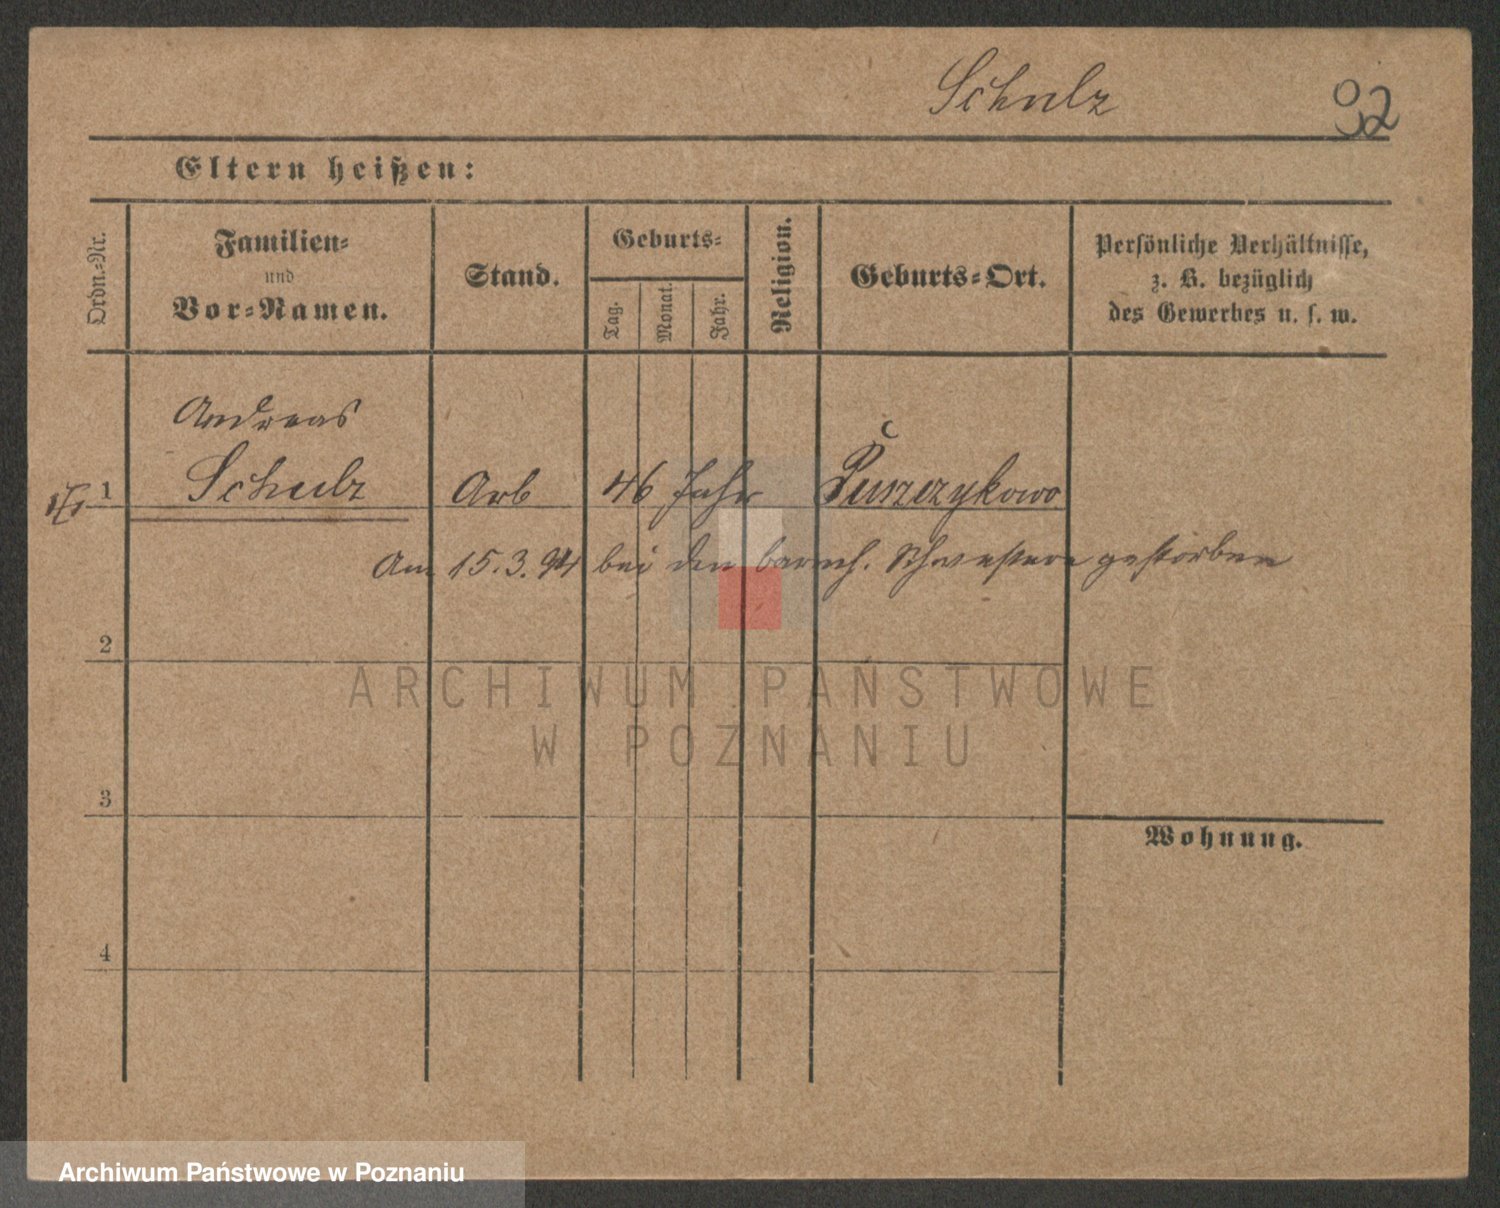 Schulz 92
Eltern heißen:
Ordn.-Nr.
Familien-
und
Vor-Namen.
Stand.
Geburts-
Tag.
Monat.
Jahr.
Religion.
Geburts-Ort.
Persönliche Verhältnisse,
z. B. bezüglich
des Gewerbes u. s. w.
Andreas
1 Schulz Arb 46 Jahr Puszczykowo
Am 15.3.94 bei den barmh. Schwestern gestorben
2
3
4
Wohnung.
ARCHIWUM PAŃSTWOWE
W POZNANIU
Archiwum Państwowe w Poznaniu